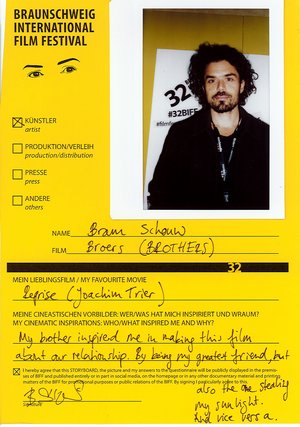 BRAUNSCHWEIG
INTERNATIONAL
FILM FESTIVAL
32
#32BIFF
KÜNSTLER
artist
PRODUKTION/VERLEIH
production/distribution
PRESSE
press
ANDERE
others
NAME Bram Schouw
FILM Broers (BROTHERS)
32
MEIN LIEBLINGSFILM / MY FAVOURITE MOVIE
Reprise (Joachim Trier)
MEINE CINEASTISCHEN VORBILDER: WER/WAS HAT MICH INSPIRIERT UND WARUM?
MY CINEMATIC INSPIRATIONS: WHO/WHAT INSPIRED ME AND WHY?
My brother inspired me in making this film
about our relationship. By being my greatest friend, but
I hereby agree that this STORYBOARD, the picture and my answers to the questionnaire will be publicly displayed in the premises of BIFF and published entirely or in part in social media, on the homepage or in any other documentary material and printing matters of the BIFF for promotional purposes or public relations of the BIFF. By signing I particularly agree to this.
also the one stealing
my sunlight.
And vice versa.
signature